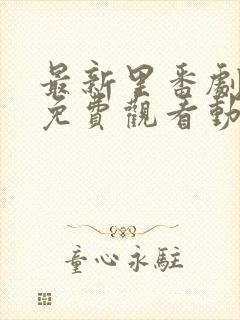 最新里番劇
免費觀看動
童心永駐